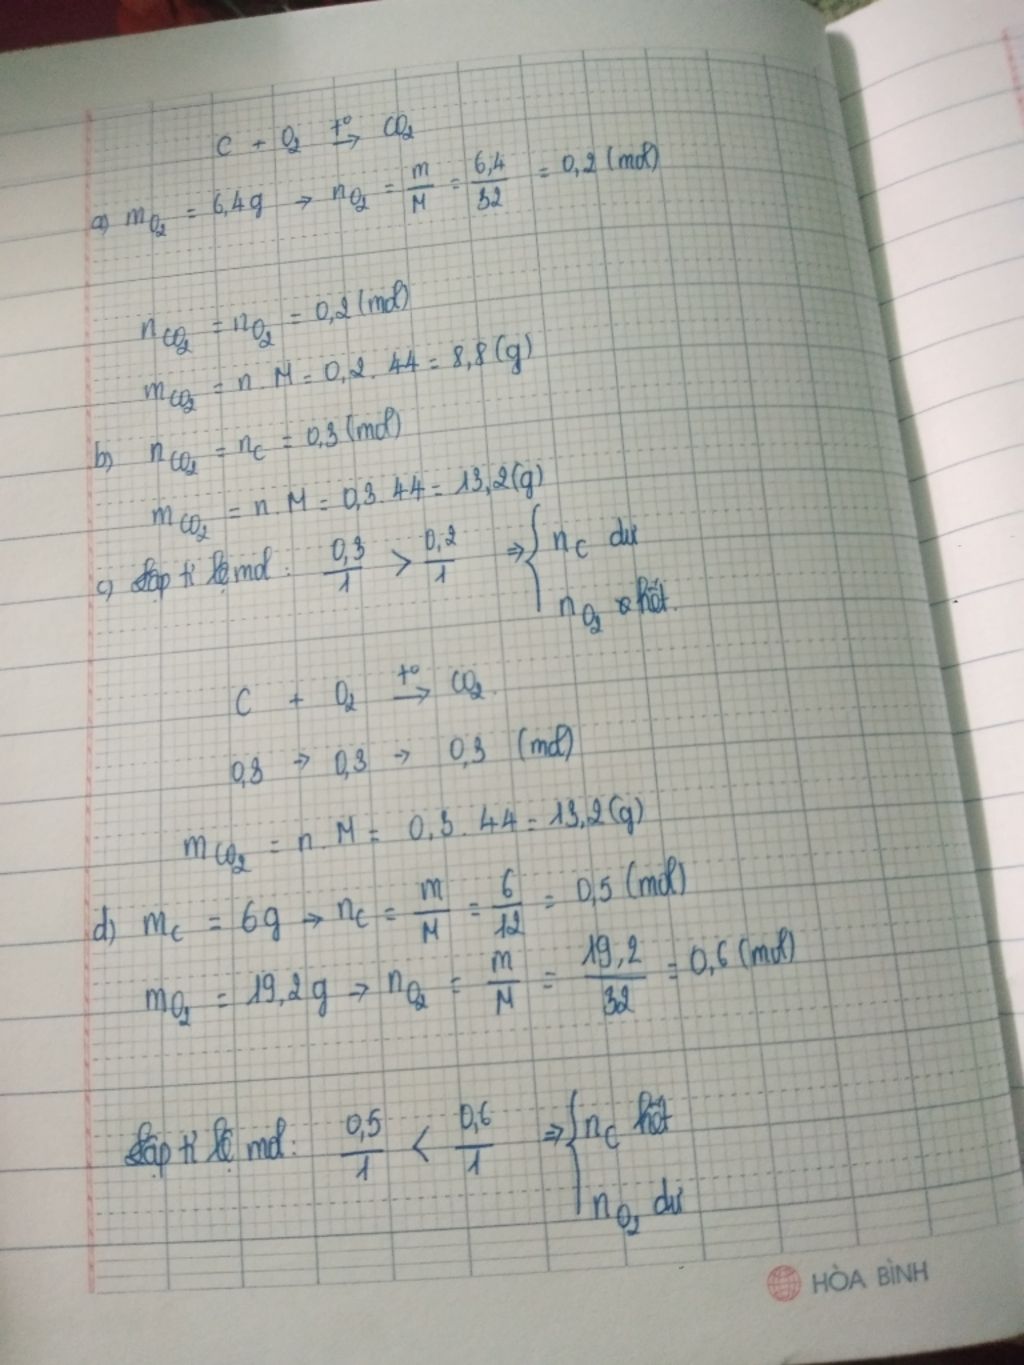 C + O₂ →(t°) CO₂
a) mO₂ = 6,4g → nO₂ = m/M = 6,4/32 = 0,2 (mol)
nCO₂ = nO₂ = 0,2 (mol)
mCO₂ = n . M = 0,2 . 44 = 8,8 (g)
b) nCO₂ = nC = 0,3 (mol)
mCO₂ = n . M = 0,3 . 44 = 13,2 (g)
c) Lập tỉ lệ mol : 0,3/1 > 0,2/1 ⇒ { nC dư
nO₂ hết.
C + O₂ →(t°) CO₂
0,3 → 0,3 → 0,3 (mol)
mCO₂ = n . M = 0,3 . 44 = 13,2 (g)
d) mC = 6g → nC = m/M = 6/12 = 0,5 (mol)
mO₂ = 19,2g → nO₂ = m/M = 19,2/32 = 0,6 (mol)
Lập tỉ lệ mol : 0,5/1 < 0,6/1 ⇒ { nC hết
nO₂ dư
HÒA BÌNH